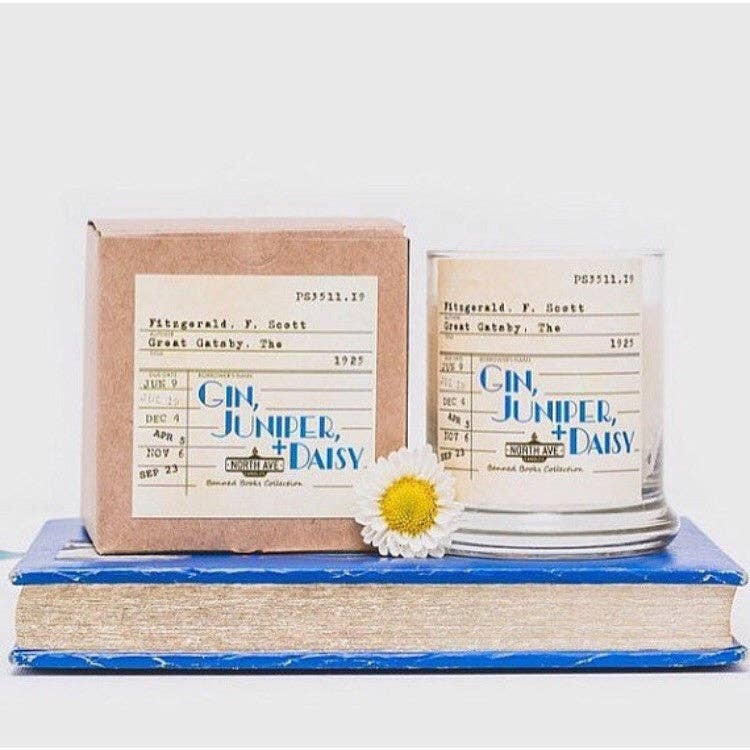 PS3511.I9
Fitzgerald, F. Scott
AUTHOR
Great Gatsby, The
TITLE
1925
DATE DUE
BORROWER'S NAME
JUN 9
JUL 19
DEC 4
APR 5
NOV 6
SEP 23
GIN,
JUNIPER,
+DAISY
NORTH AVE
Banned Books Collection
PS3511.I9
Fitzgerald, F. Scott
Great Gatsby, The
1925
BORROWER'S NAME
JUN 9
DEC 4
APR 5
NOV 6
SEP 23
GIN,
JUNIPER,
+DAISY
NORTH AVE
Banned Books Collection